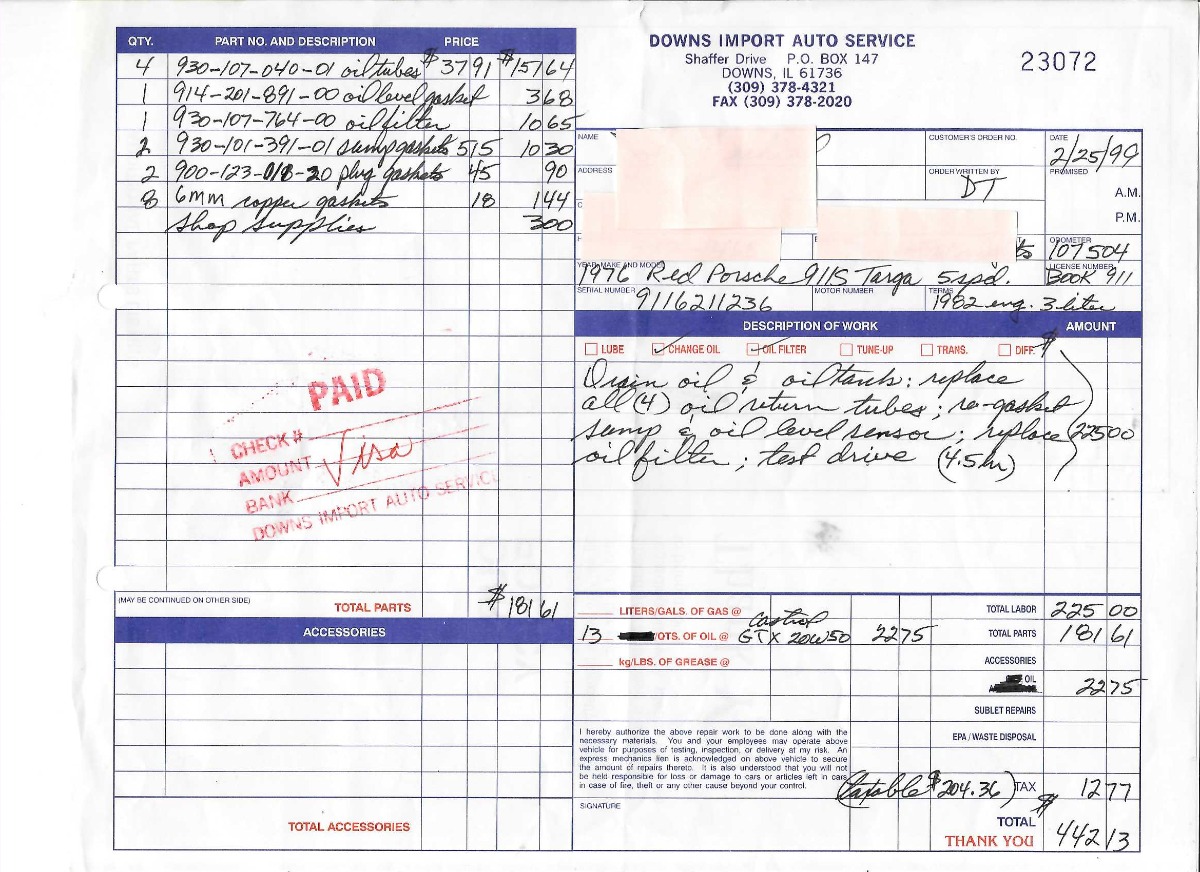 QTY. PART NO. AND DESCRIPTION PRICE
4 930-107-040-01 oil tubes $37 91 $157 64
1 914-201-891-00 oil level gasket 3 68
1 930-107-764-00 oil filter 10 65
2 930-101-391-01 sump gaskets 5 15 10 30
2 900-123-018-20 plug gaskets 45 90
8 6MM copper gaskets 18 1 44
shop supplies 3 00
PAID
CHECK #
AMOUNT Visa
BANK
DOWNS IMPORT AUTO SERVICE
(MAY BE CONTINUED ON OTHER SIDE) TOTAL PARTS $181 61
ACCESSORIES
TOTAL ACCESSORIES
DOWNS IMPORT AUTO SERVICE
Shaffer Drive P.O. BOX 147
DOWNS, IL 61736
(309) 378-4321
FAX (309) 378-2020
23072
NAME CUSTOMER'S ORDER NO. DATE
2/25/99
ADDRESS ORDER WRITTEN BY PROMISED
DT A.M.
P.M.
ODOMETER
107504
YEAR, MAKE AND MODEL LICENSE NUMBER
1976 Red Porsche 911S Targa 5 spd. BOOK 911
SERIAL NUMBER MOTOR NUMBER TERMS
9116211236 1982 eng. 3 liter
DESCRIPTION OF WORK AMOUNT
LUBE CHANGE OIL OIL FILTER TUNE-UP TRANS. DIFF. $
Drain oil & oil tank: replace
all (4) oil return tubes; re-gasket
sump & oil level sensor; replace 225 00
oil filter; test drive (4.5 hr)
LITERS/GALS. OF GAS @ TOTAL LABOR 225 00
Castrol
13 /QTS. OF OIL @ GTX 20W50 22 75 TOTAL PARTS 181 61
kg/LBS. OF GREASE @ ACCESSORIES
OIL 22 75
SUBLET REPAIRS
EPA / WASTE DISPOSAL
I hereby authorize the above repair work to be done along with the
necessary materials. You and your employees may operate above
vehicle for purposes of testing, inspection, or delivery at my risk. An
express mechanics lien is acknowledged on above vehicle to secure
the amount of repairs thereto. It is also understood that you will not
be held responsible for loss or damage to cars or articles left in cars
in case of fire, theft or any other cause beyond your control.
(taxable $204.36) TAX 12 77
SIGNATURE
TOTAL $442 13
THANK YOU